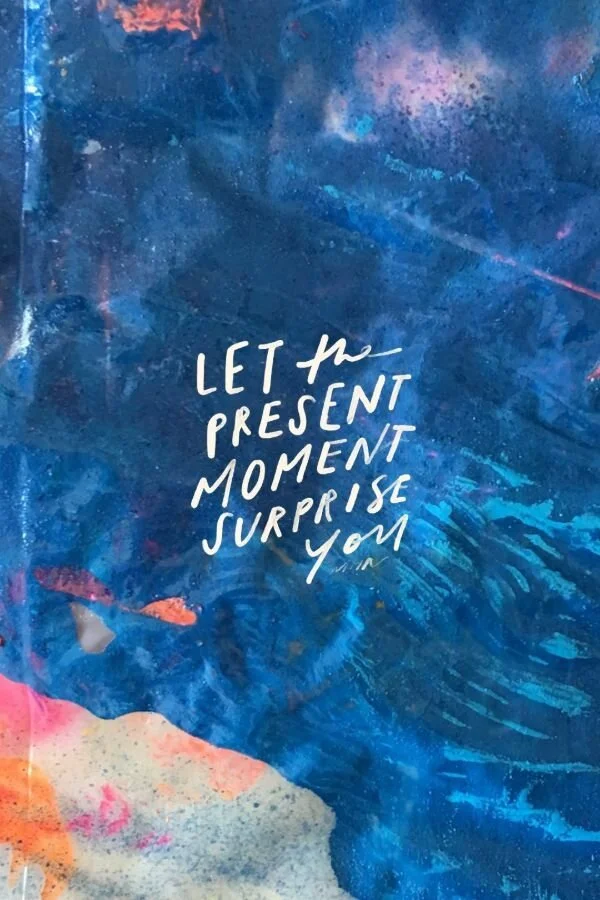 LET the
PRESENT
MOMENT
SURPRISE
YOU